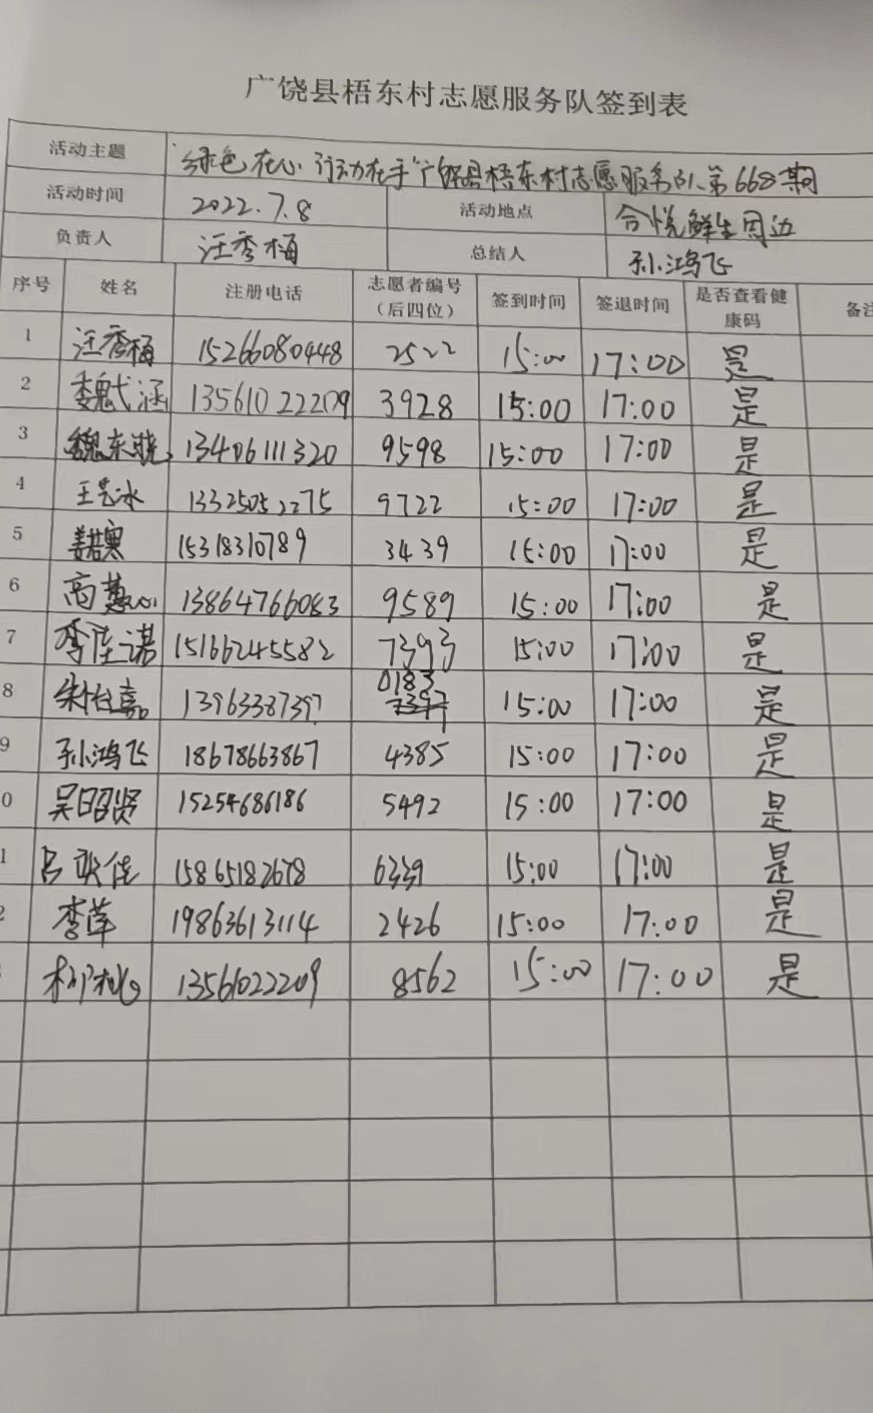 广饶县梧东村志愿服务队签到表
活动主题 "绿色在心 行动在手"广饶县梧东村志愿服务队第668期
活动时间 2022.7.8 活动地点 合悦鲜生周边
负责人 汪秀梅 总结人 孙鸿飞
序号 姓名 注册电话 志愿者编号（后四位） 签到时间 签退时间 是否查看健康码 备注
1 汪秀梅 15266080448 2522 15:00 17:00 是
2 魏弋涵 13561022209 3928 15:00 17:00 是
3 魏东晓 13406111320 9598 15:00 17:00 是
4 王艺冰 13325052275 9722 15:00 17:00 是
5 姜若寒 15318310789 3439 15:00 17:00 是
6 高慧 13864766083 9589 15:00 17:00 是
7 李佳谋 15166245582 7393 15:00 17:00 是
8 朱怡嘉 13963387397 0183 15:00 17:00 是
9 孙鸿飞 18678663867 4385 15:00 17:00 是
0 吴昭贤 15254686186 5492 15:00 17:00 是
1 吕欣佳 15865182678 6339 15:00 17:00 是
2 李莲 19863613114 2426 15:00 17:00 是
13561022209 8562 15:00 17:00 是